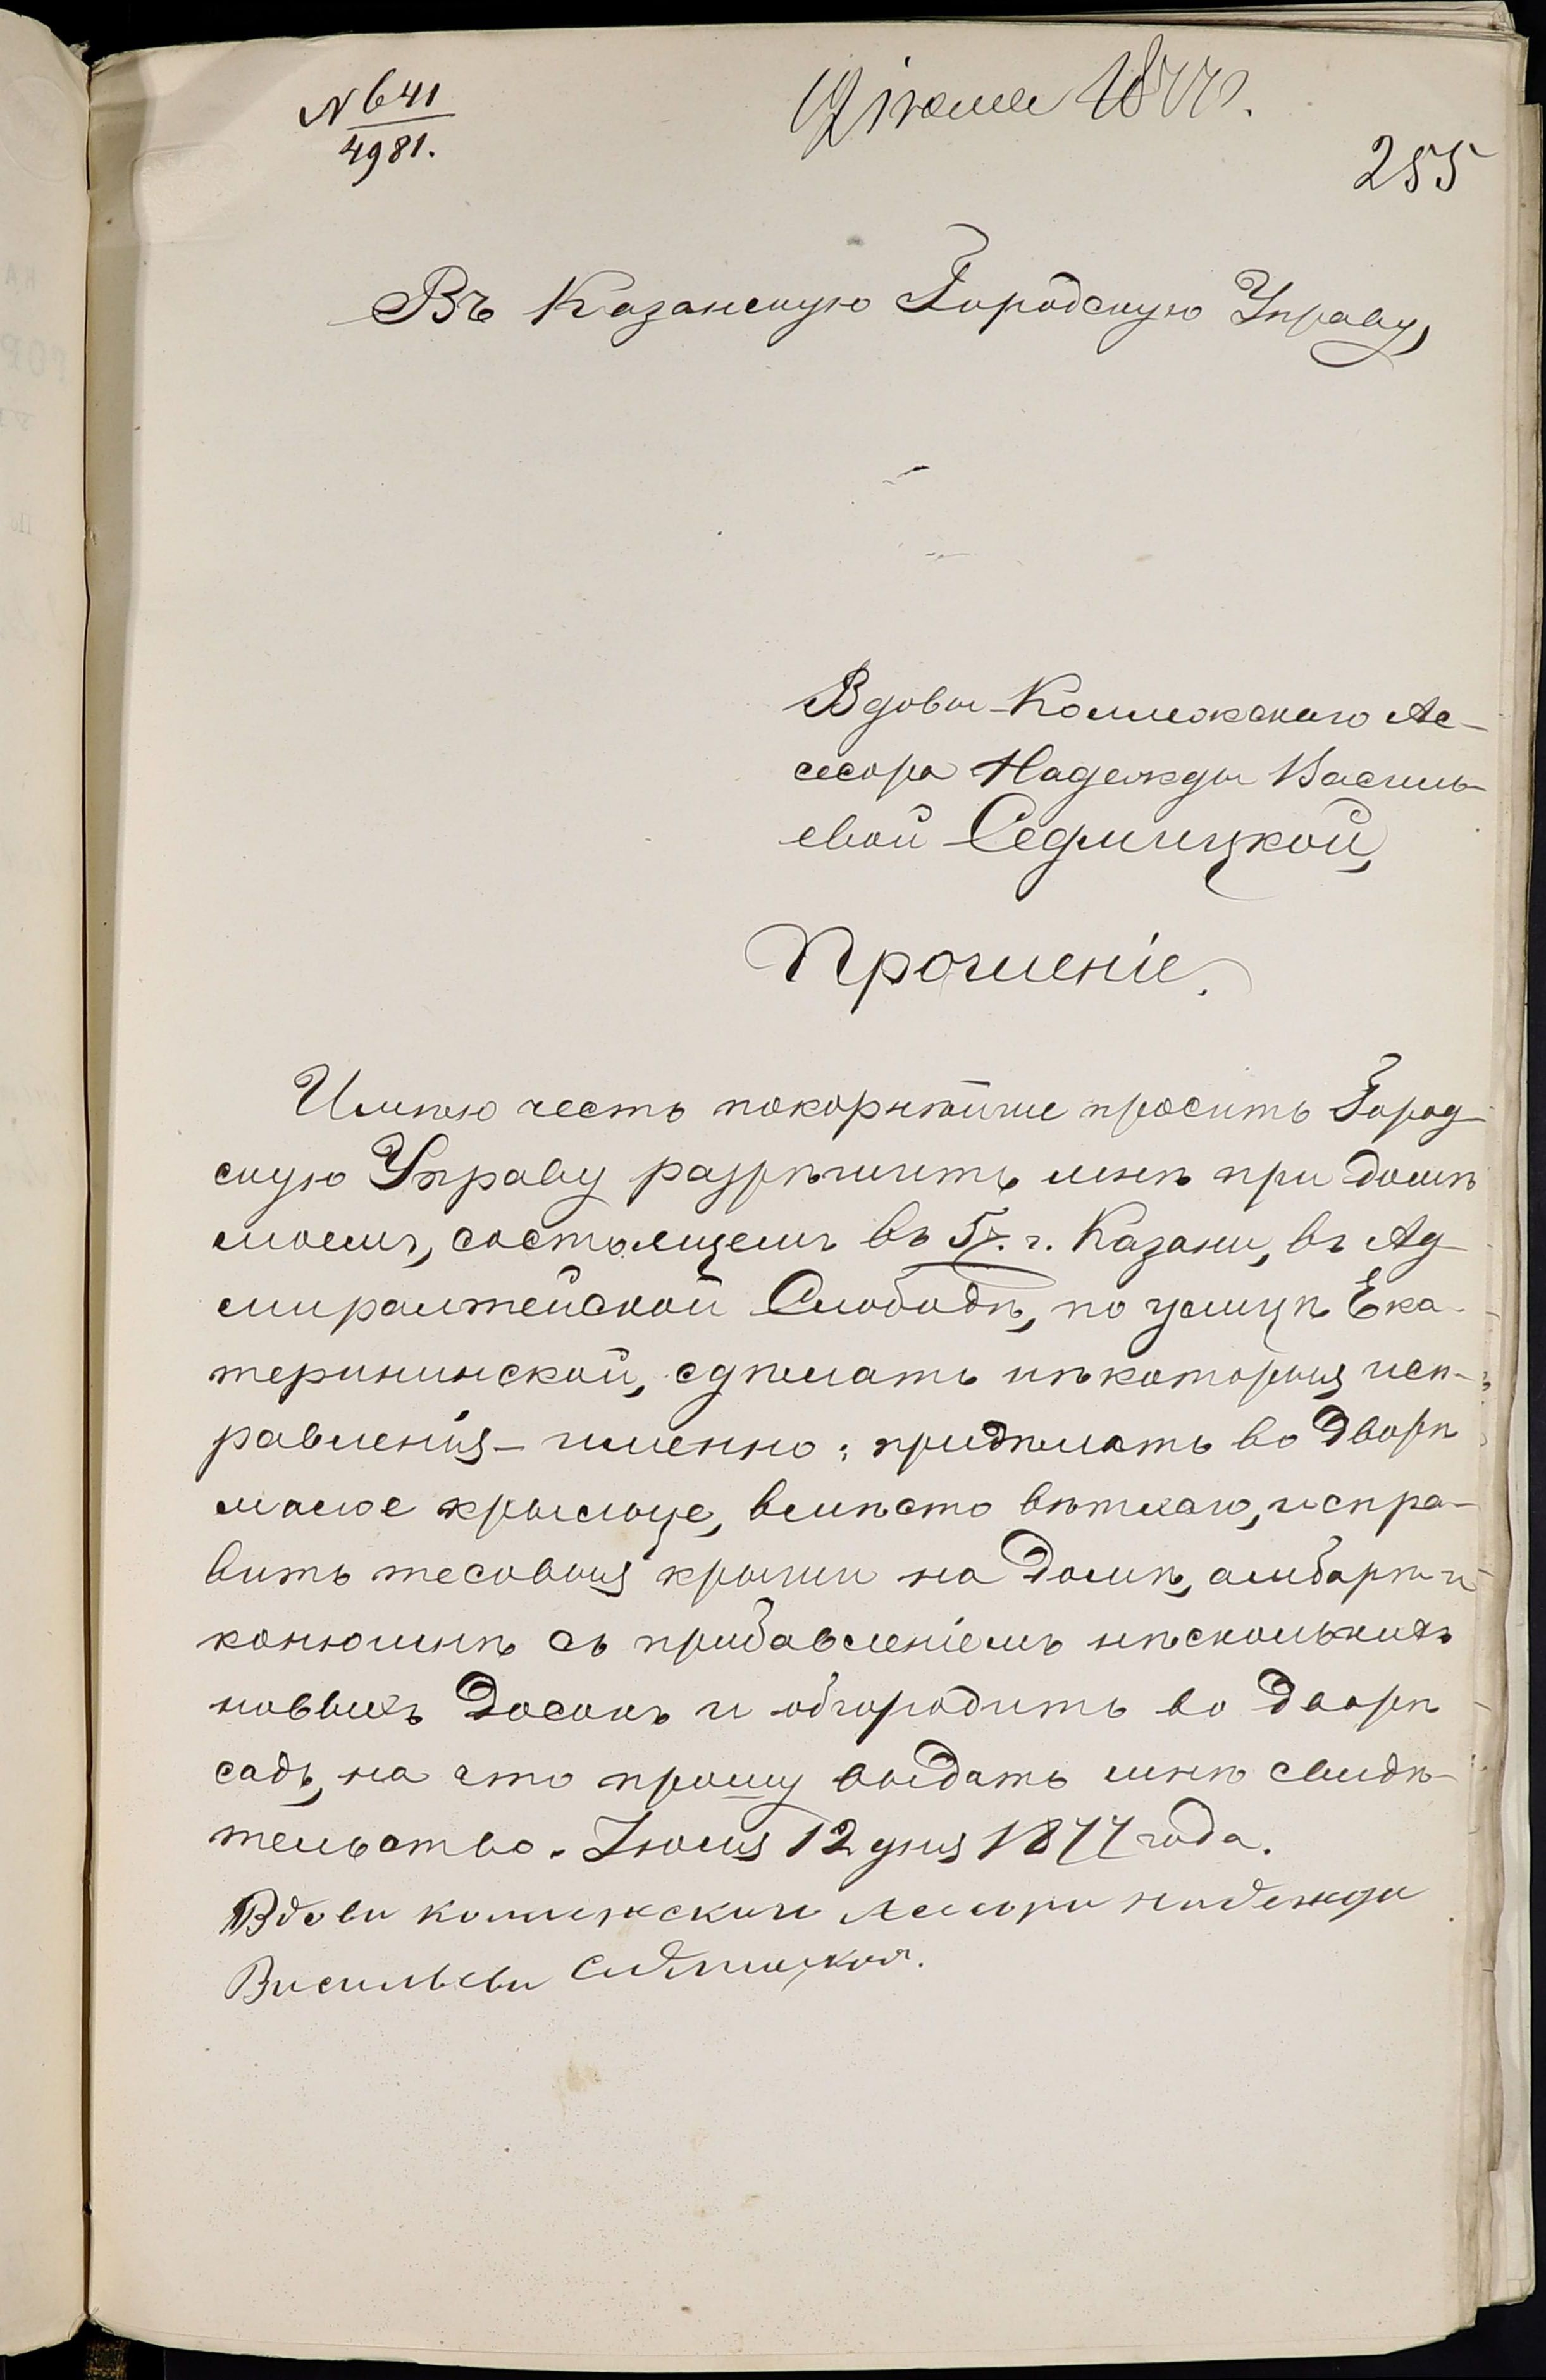 № 641
4981.
12 июля 1877 г.
255
Въ Казанскую Городскую Управу,
Вдовы Коллежскаго Ас-
сесора Надежды Василь-
евой Седлицкой,
Прошеніе.
Имѣю честь покорнѣйше просить Город-
скую Управу разрѣшить мнѣ при домѣ
моемъ, состоящемъ въ 5й. ч. Казани, въ Ад-
миралтейской Слободѣ, по улицѣ Ека-
терининской, сдѣлать нѣкоторыя исп-
равленія - именно: придѣлать во дворѣ
малое крыльце, вмѣсто вѣтхаго, испра-
вить тесовыя крыши на домѣ, амбарѣ и
конюшнѣ съ прибавленіемъ нѣсколькихъ
новыхъ досокъ и обгородить во дворѣ
садъ, на что прошу выдать мнѣ свидѣ-
тельство. Іюля 12 дня 1877 года.
Вдова коллежскаго Ассесора надежда
Васильева Седлицкая.